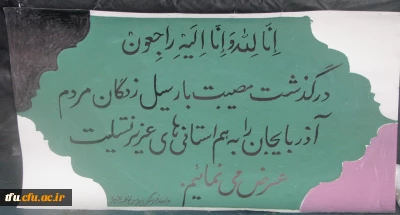 إِنَّا لِلّٰهِ وَإِنَّا إِلَيْهِ رَاجِعُونَ
درگذشت مصیبت بار سیل زدگان مردم
آذربایجان را به هم استانی های عزیز تسلیت
عرض می نمائیم.
tfu.cfu.ac.ir